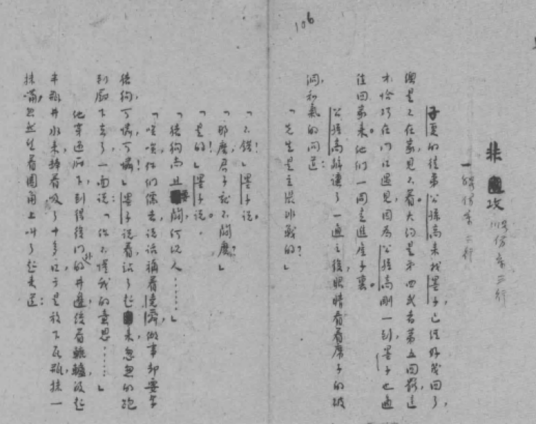 106
非攻
一
子夏的徒弟公孫高來找墨子,已經好幾回了,
總是不在家,見不着。大約是第四或者第五回罷,這
才恰巧在門口遇見,因為公孫高剛一到,墨子也適
值回家來。他們一同走進屋子裏。
公孫高辭讓了一通之後,眼睛看着席子的破
洞,和氣的問道:
「先生是主張非戰的?」
「不錯!」墨子說。
「那麼,君子就不鬥麼?」
「是的!」墨子說。
「豬狗尚且要鬥,何況人……」
「唉唉,你們儒者,說話稱着堯舜,做事却要學
豬狗,可憐,可憐!」墨子說着,站了起來,匆匆的跑
到廚下去了,一面說:「你不懂我的意思……」
他穿過廚下,到得後門外的井邊,絞着轆轤,汲起
半瓶井水來,捧着吸了十多口,于是放下瓦瓶,抹一
抹嘴,忽然望着園角上叫了起來道: